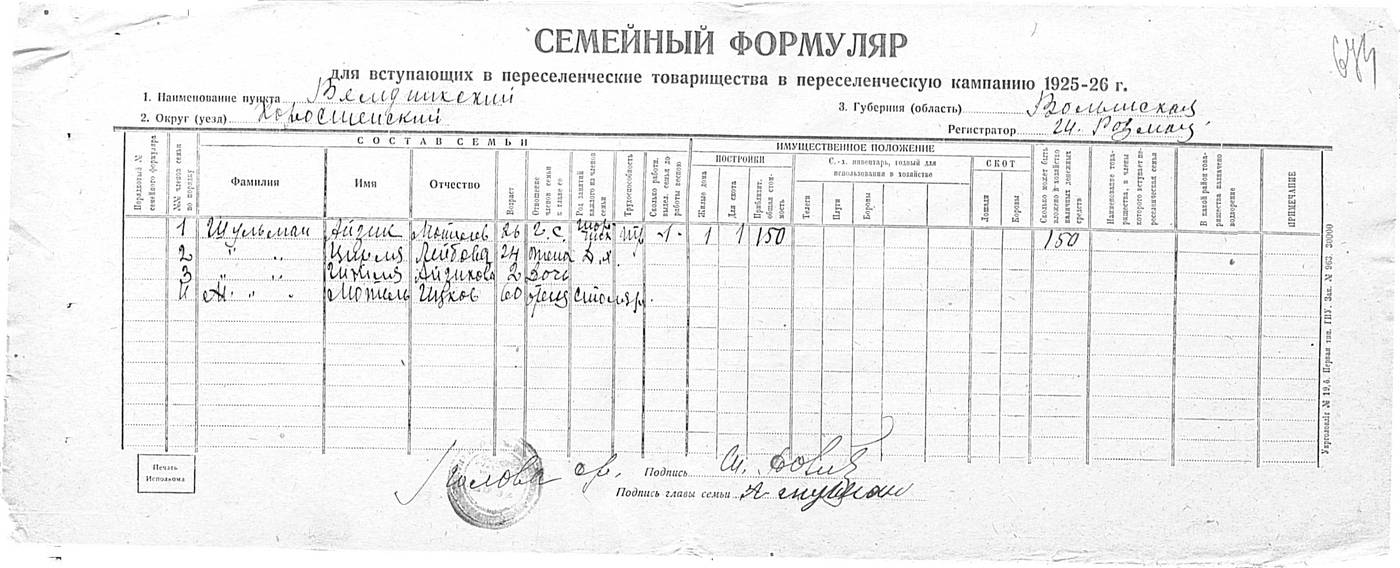 674
СЕМЕЙНЫЙ ФОРМУЛЯР
для вступающих в переселенческие товарищества в переселенческую кампанию 1925-26 г.
1. Наименование пункта
3. Губерния (область) Волынская
2. Округ (уезд) Коростенский
Регистратор
СОСТАВ СЕМЬИ
ИМУЩЕСТВЕННОЕ ПОЛОЖЕНИЕ
ПОСТРОЙКИ
С.-х. инвентарь, годный для использования в хозяйстве
СКОТ
Порядковый № семейного формуляра
№№ членов семьи по порядку
Фамилия
Имя
Отчество
Возраст
Отношение членов семьи к главе ее
Род занятий каждого из членов семьи
Трудоспособность
Сколько работн. вышел. семья до работы весною
Жилые дома
Для скота
Приблизит. общая стоимость
Телеги
Плуги
Бороны
Лошади
Коровы
Сколько может быть вложено в хозяйство наличных денежных средств
Наименование товарищества, в члены которого вступает переселенческая семья
В какой район товарищества назначено водворение
ПРИМЕЧАНИЕ
1 Шульман Айзик Мотелев 26 г. с. 1 1 1 150 150
2 " " Цирля Лейбова 24 жена д. х.
3 " " Айзикова 2 дочь
4 " " Мотель Ицков 60 отец столяр
Печать Исполкома
Голова
Подпись
Подпись главы семьи
Укрголовліт № 19,6. Первая тип. ГИУ. Зак. № 963. 20000